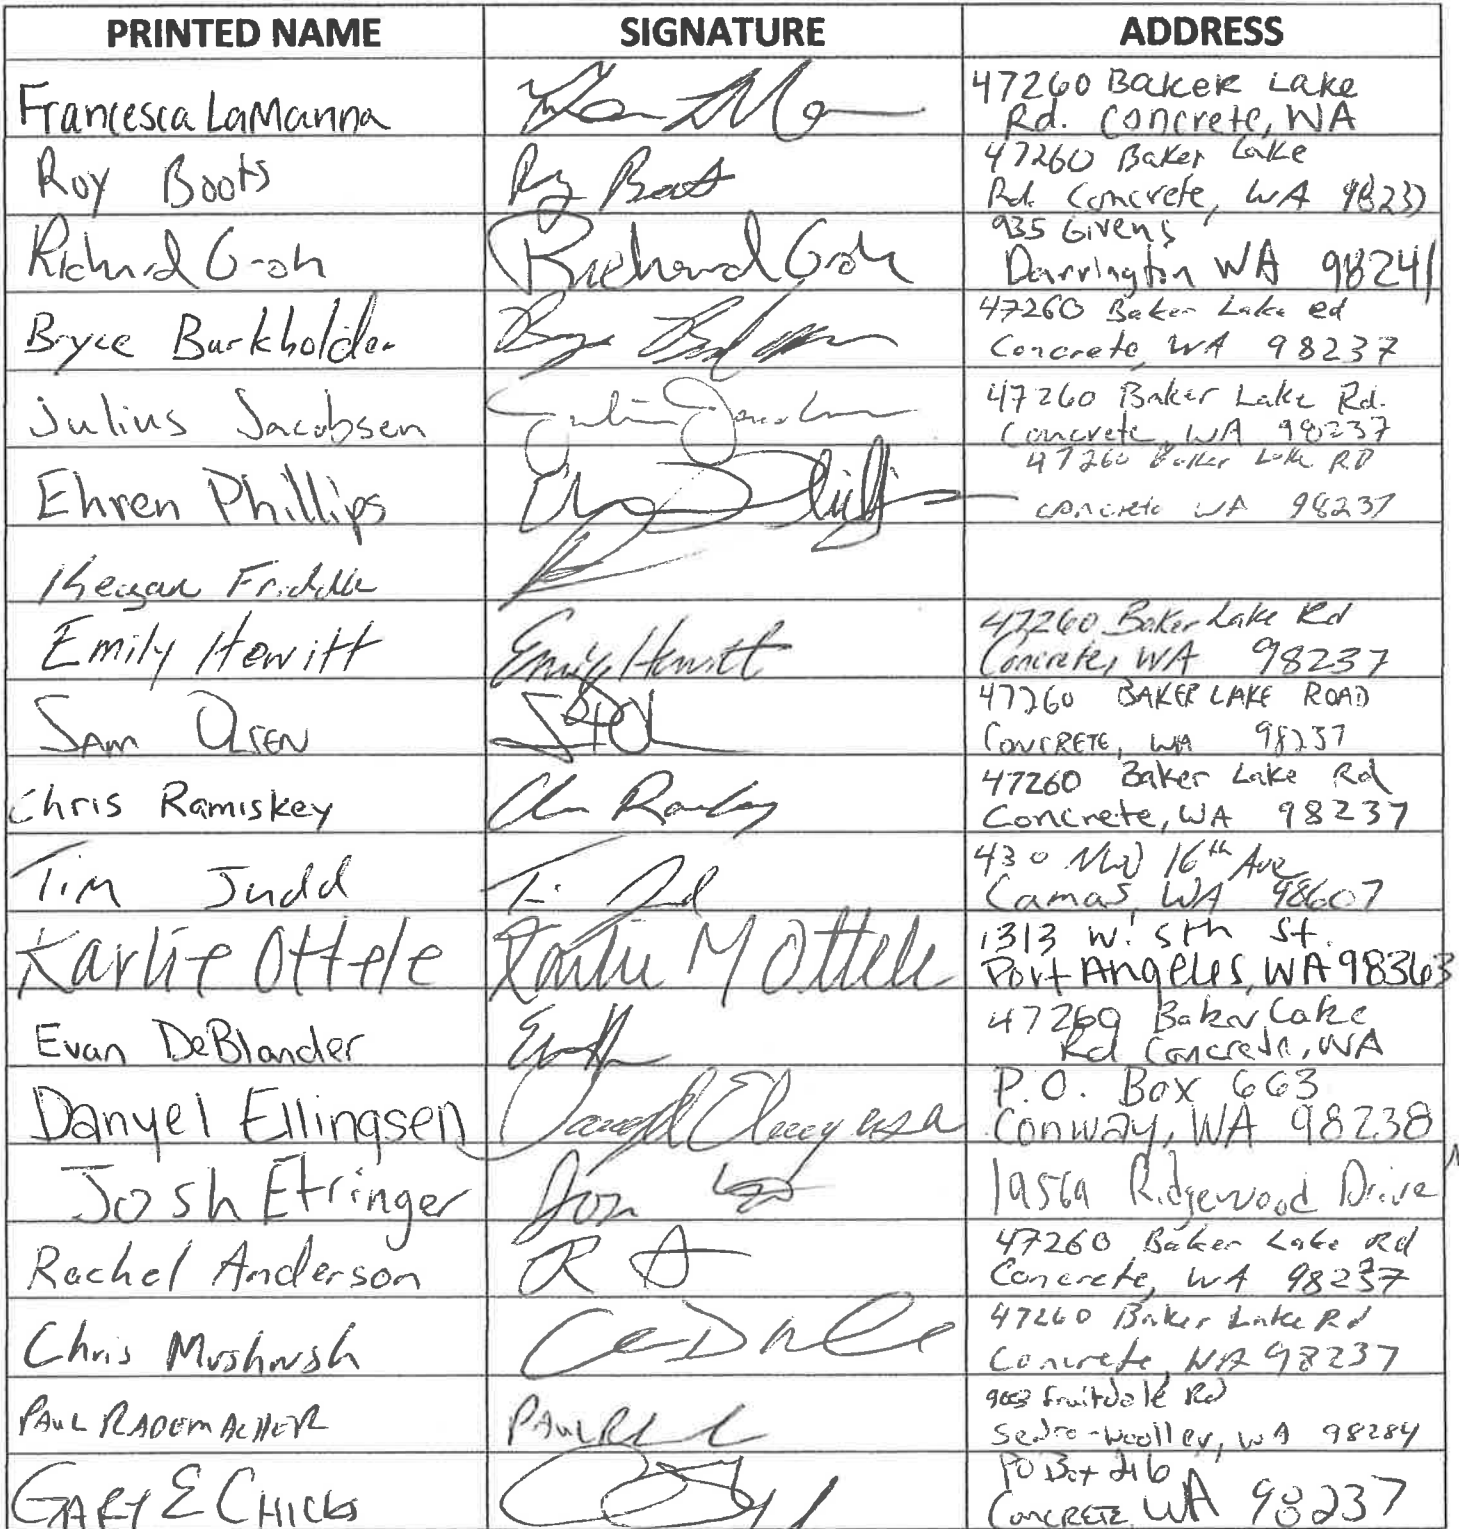 PRINTED NAME SIGNATURE ADDRESS
Francesca LaManna 47260 Baker Lake
Rd. Concrete, WA
Roy Boots Roy Boots 47260 Baker Lake
Rd. Concrete, WA 98237
Richard Groh Richard Groh 935 Givens
Darrington WA 98241
Bryce Burkholder Bryce 47260 Baker Lake ed
Concrete, WA 98237
Julius Jacobsen Julius Jacobsen 47260 Baker Lake Rd.
Concrete, WA 98237
Ehren Phillips 47260 Baker Lake RD
concrete WA 98237
Keegan
Emily Hewitt Emily Hewitt 47260 Baker Lake Rd
Concrete, WA 98237
SAM OLSEN 47260 BAKER LAKE ROAD
CONCRETE, WA 98237
Chris Ramiskey 47260 Baker Lake Rd
Concrete, WA 98237
Tim Judd 430 NW 16th Ave
Camas, WA 98607
Karlie Ottele Karlie M Ottele 1313 W. 5th St.
Port Angeles, WA 98363
Evan DeBlander 47260 Baker Lake
Rd Concrete, WA
Danyel Ellingsen Danyel Ellingsen P.O. Box 663
Conway, WA 98238
Josh Etringer Ridgewood Drive
Rachel Anderson R A 47260 Baker Lake Rd
Concrete, WA 98237
Chris 47260 Baker Lake Rd
Concrete, WA 98237
PAUL RADEMACHER PAUL Fruitdale Rd
Sedro-Woolley, WA 98284
GARY E CHICKS PO Box 216
CONCRETE WA 98237